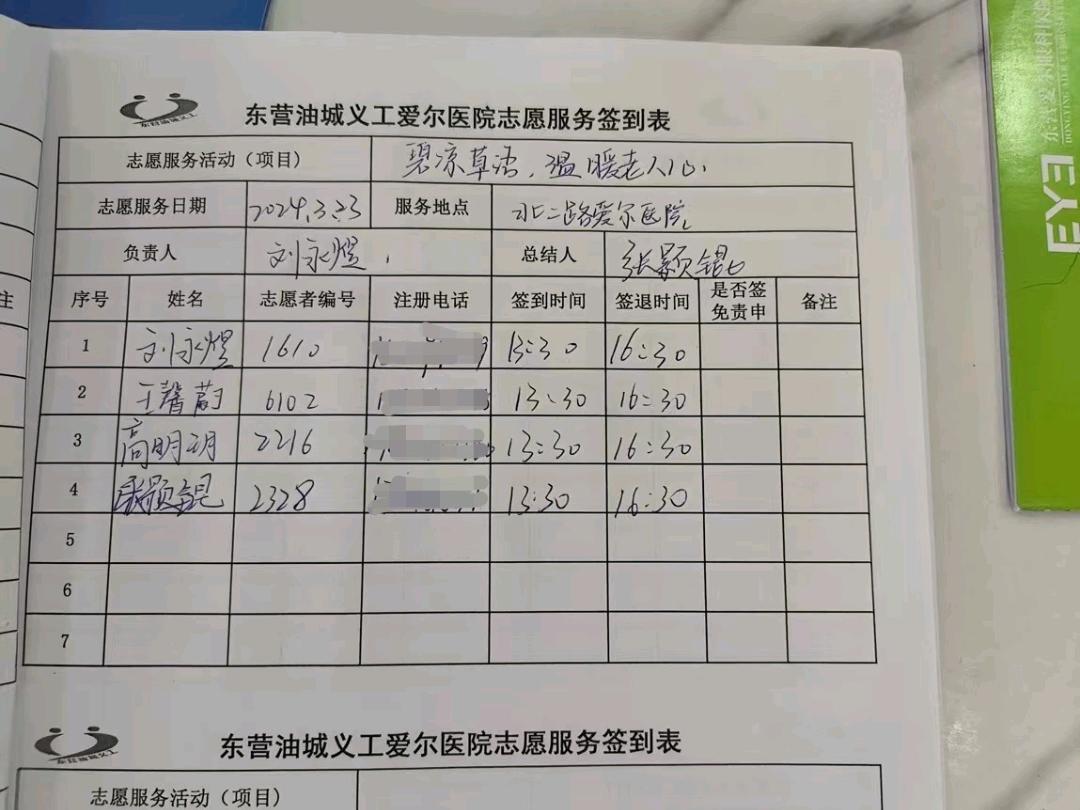 东营油城义工爱尔医院志愿服务签到表
志愿服务活动（项目） 碧凉草活，温暖老人心
志愿服务日期 2024.3.23 服务地点 北二路爱尔医院
负责人 刘永煜 总结人 张颢锟
序号 姓名 志愿者编号 注册电话 签到时间 签退时间 是否签免责申 备注
1 刘永煜 1610 13:30 16:30
2 王馨蔚 6102 13:30 16:30
3 高明玥 2216 13:30 16:30
4 2328 13:30 16:30
5
6
7
东营油城义工
东营油城义工爱尔医院志愿服务签到表
志愿服务活动（项目）
EYE